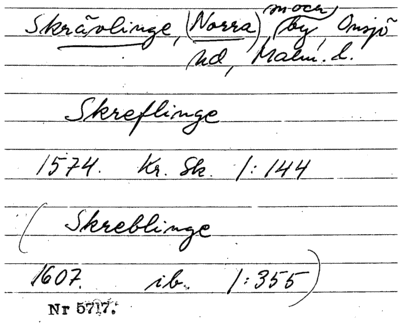 Skrävlinge, (Norra) socken, by, Onsjö
hd, Malm. l.
Skreflinge
1574. Kr. Sk. 1:144
(Skreblinge
1607. ib. 1:355)
Nr 5717.